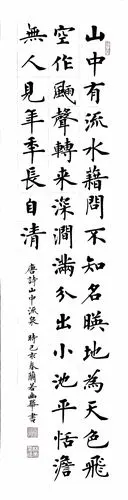 山中有流水藉問不知名暎地為天色飛
空作聲轉来深澗滿分出小池平恬澹
無人見年秊長自清
唐詩山中流泉 時己亥春蘭幽書